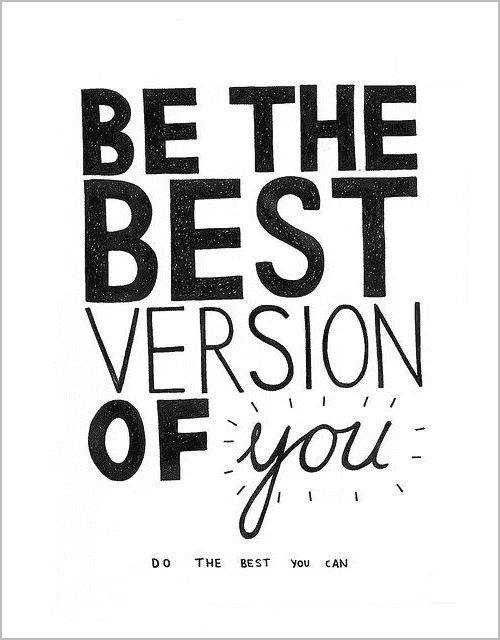 BE THE
BEST
VERSION
OF you
DO THE BEST YOU CAN